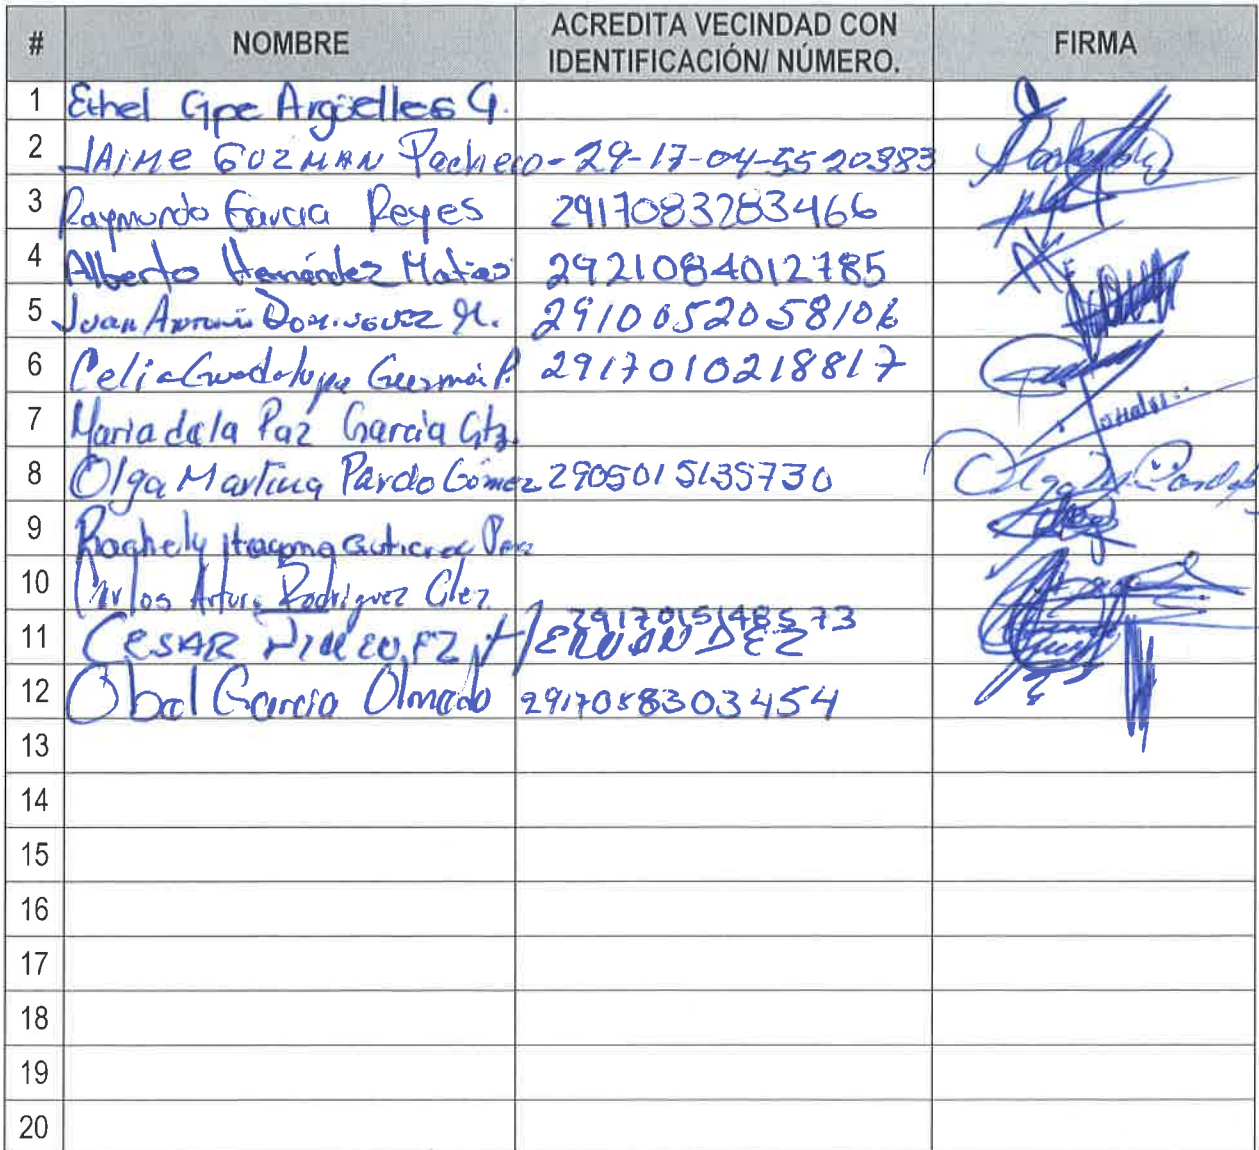 # NOMBRE ACREDITA VECINDAD CON IDENTIFICACIÓN/ NÚMERO. FIRMA
1 Ethel Gpe Argüelles G.
2 JAIME GUZMAN Pacheco - 29-17-04-5520383
3 Raymundo Garcia Reyes 2917083283466
4 Alberto Hernández Matías 2921084012785
5 Juan Antonio Dominguez M. 2910052058106
6 Celia Guadalupe Guzmán P. 2917010218817
7 Maria de la Paz Garcia Gtz.
8 Olga Martina Pardo Gómez 2905015135730 Olga M. Pardo
9 Gutierrez
10 Carlos Arturo Rodriguez Glez
2917015148573
11 CESAR HERNANDEZ
12 Obal Garcia Olmedo 2917058303454
13
14
15
16
17
18
19
20